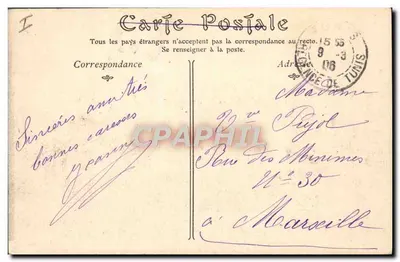 I
Carte Postale
Tous les pays étrangers n'acceptent pas la correspondance au recto.
Se renseigner à la poste.
Correspondance
Adr
15 55
9 -3
06
DE TUNIS
Sincères amitiés
bonnes caresses
Madame
Vve Pujol
Rue des Minimes
N° 30
à Marseille
CPARAMA